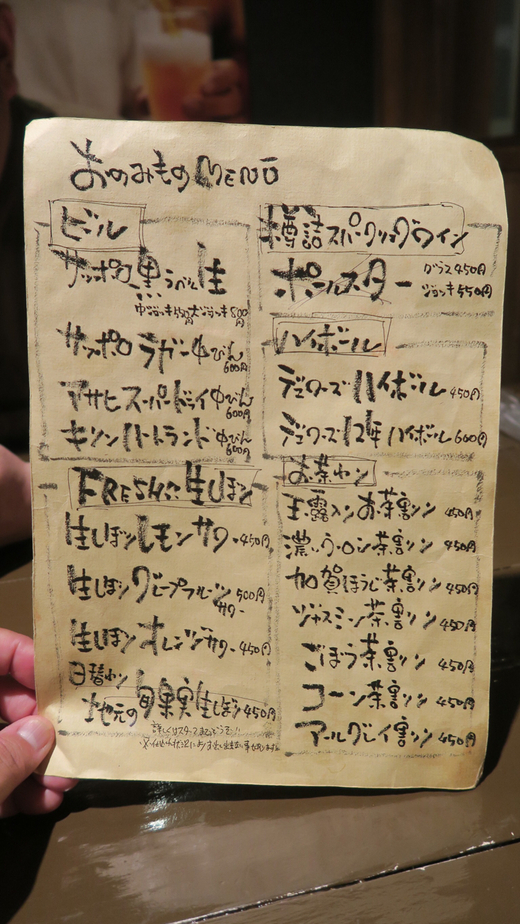 おのみものMENU
ビール
サッポロ黒ラベル生
中ジョッキ450円大ジョッキ800円
サッポロラガー中びん600円
アサヒスーパードライ中びん600円
キリンハートランド中びん600円
FRESHな生しぼり
生しぼりレモンサワー450円
生しぼりグレープフルーツサワー500円
生しぼりオレンジサワー450円
日替わり
地元の旬果実生しぼり450円
詳しくはスタッフまでどうぞ!!
樽詰スパークリングワイン
ポールスター
グラス450円
ジョッキ550円
ハイボール
デュワーズハイボール450円
デュワーズ12年ハイボール600円
お茶わり
玉露入りお茶割り450円
濃いウーロン茶割り450円
加賀ほうじ茶割り450円
ジャスミン茶割り450円
ごぼう茶割り450円
コーン茶割り450円
アールグレイ割り450円